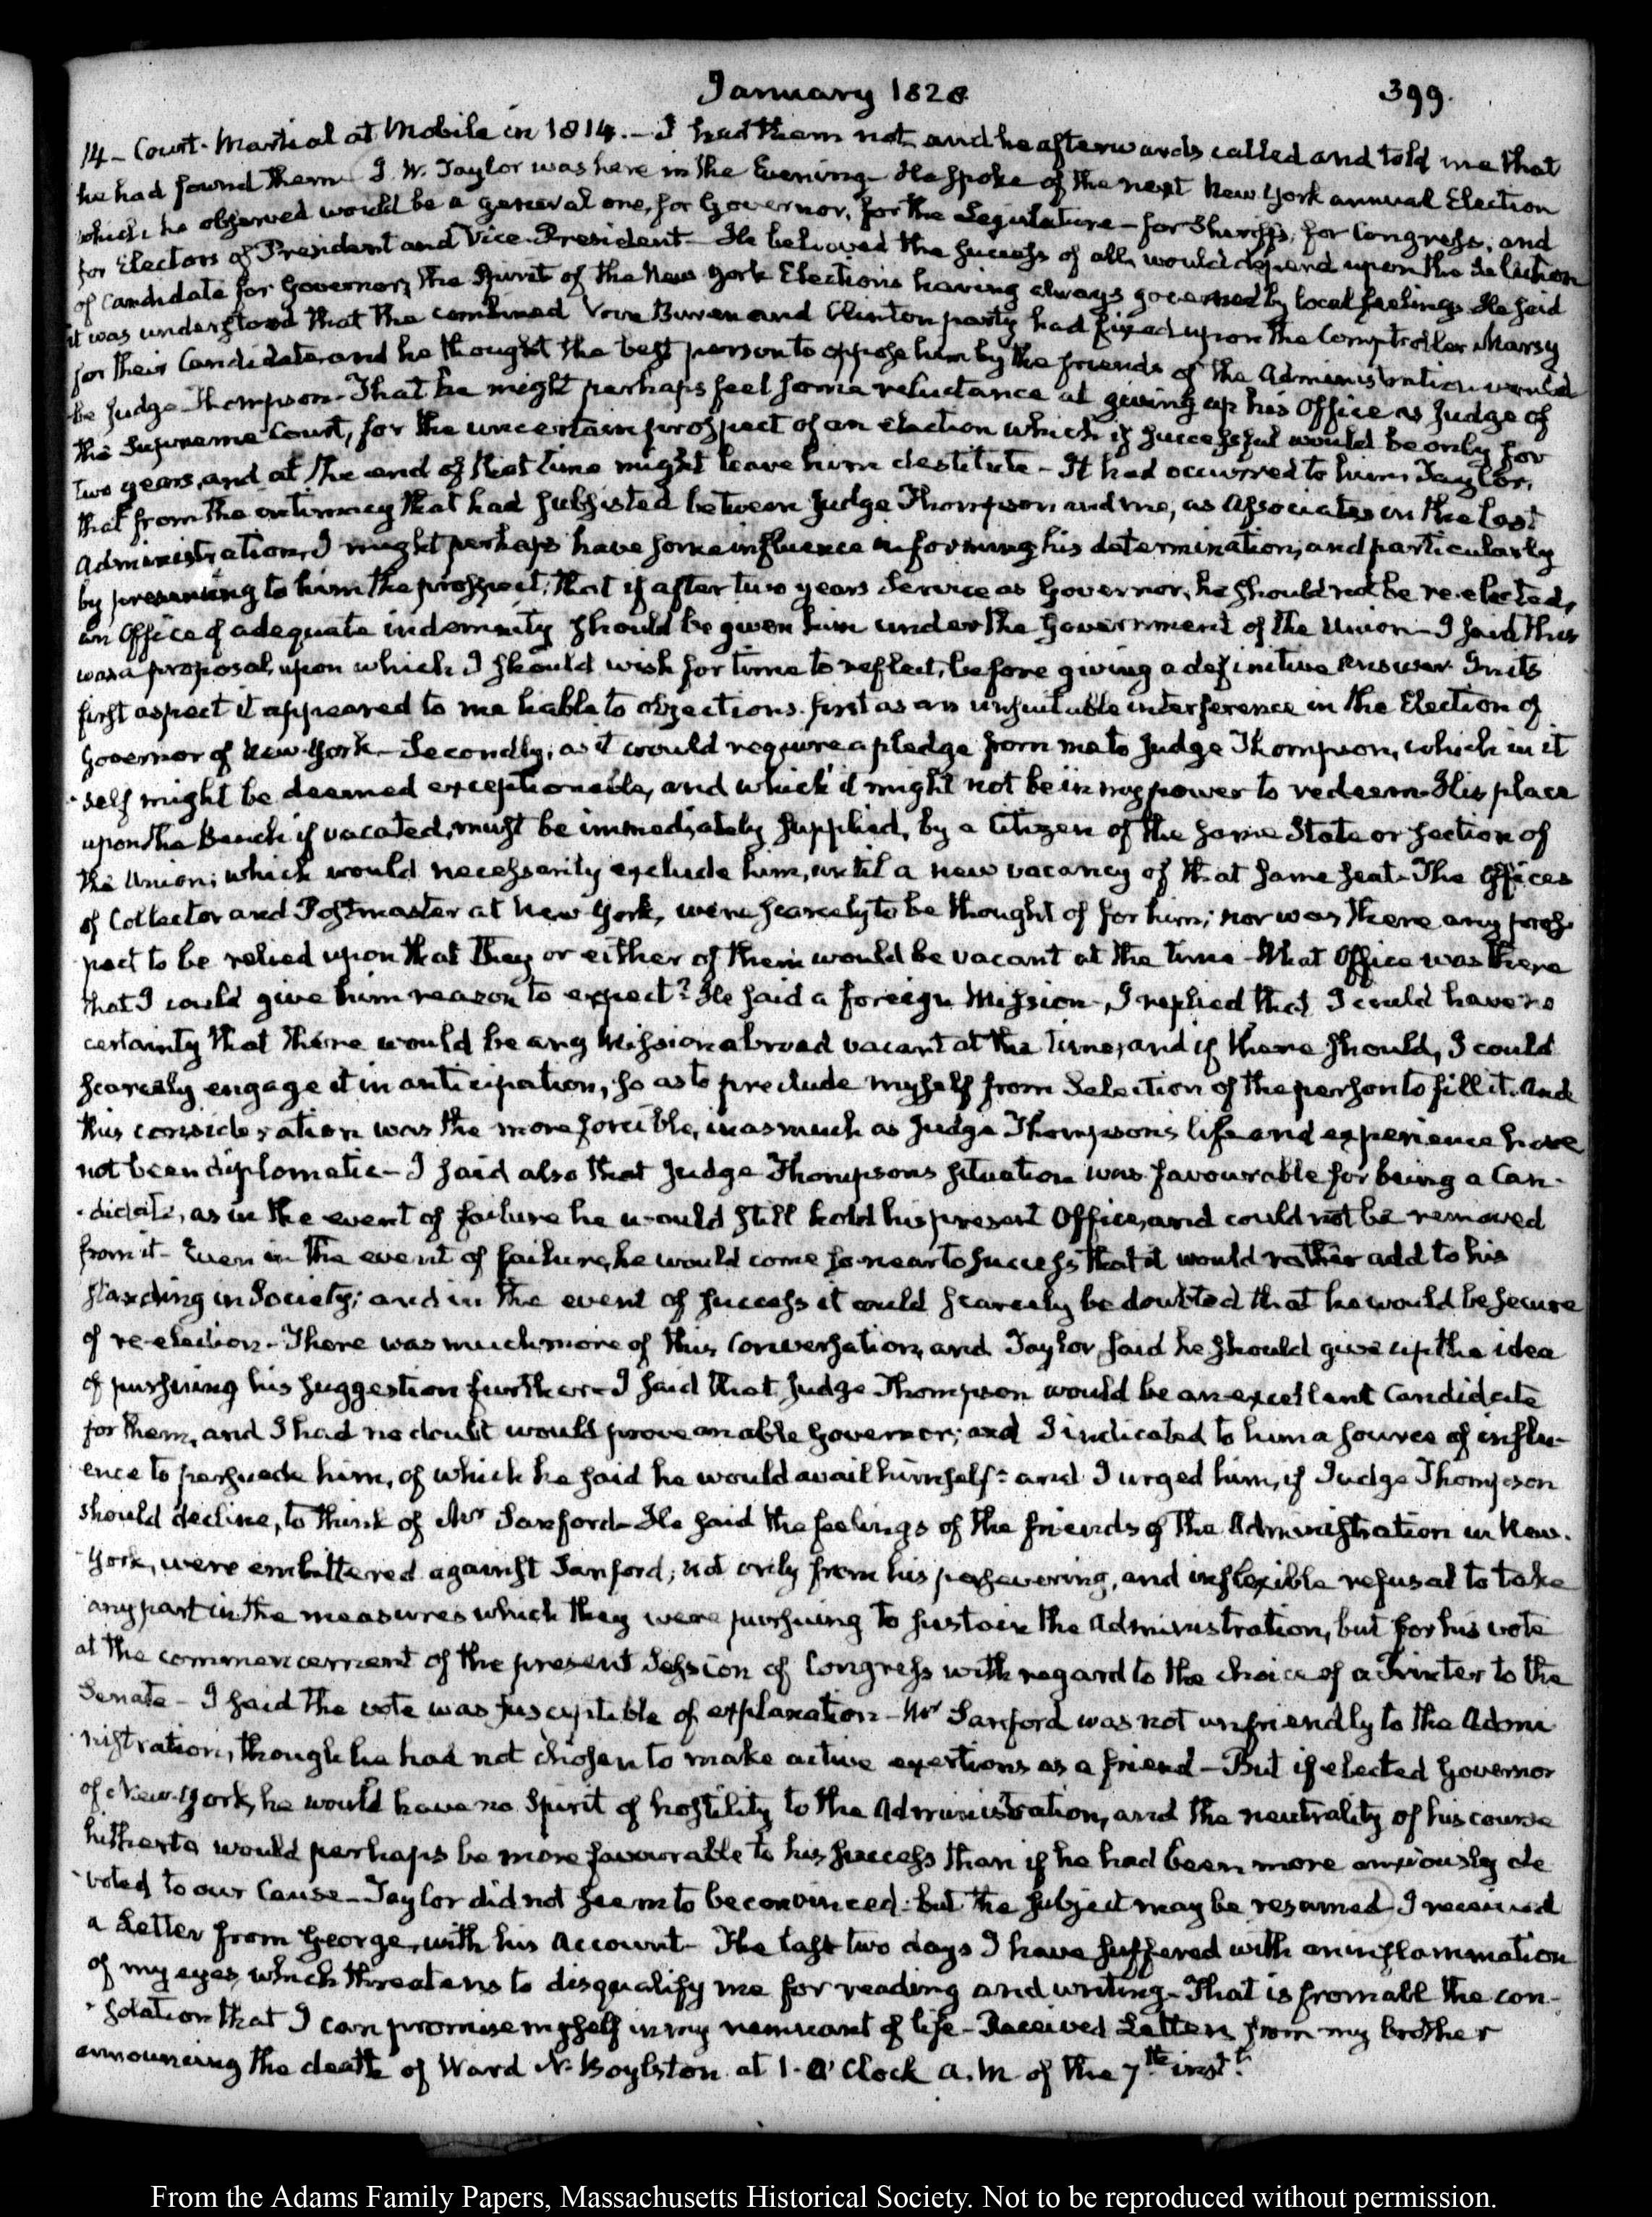 January 1828
399.
14 - Court-Martial at Mobile in 1814. - I had them not, and he afterwards called and told me that
he had found them J. W. Taylor was here in the Evening - He spoke of the next New York annual Election
which he observed would be a general one, for Governor, for the Legislature - for Sheriffs, for Congress, and
for Electors of President and Vice-President - He believed the success of all, would depend upon the selection
of Candidate for Governor, the Spirit of the New York Elections having always governed by local feelings He said
it was understood that the combined Van Buren and Clinton party had fixed upon the Comptroller Marsy
for their Candidate and he thought the best person to oppose him by the friends of the Administration would
be Judge Thompson - That he might perhaps feel some reluctance at giving up his Office as Judge of
the Supreme Court, for the uncertain prospect of an election which if successful would be only for
two years, and at the end of that time might leave him destitute - It had occurred to him, Taylor,
that from the intimacy that had subsisted between Judge Thompson and me, as Associates in the last
Administration, I might perhaps have some influence in forming his determination, and particularly
by presenting to him the prospect, that if after two years Service as Governor, he should not be re-elected,
an Office of adequate indemnity should be given him under the Government of the Union - I said this
was a proposal, upon which I should wish for time to reflect, before giving a definitive answer In its
first aspect it appeared to me liable to objections. first as an unsuitable interference in the Election of
Governor of New-York - Secondly, as it would require a pledge from me to Judge Thompson, which in it
-self might be deemed exceptionable, and which it might not be in my power to redeem - His place
upon the Bench if vacated, must be immediately supplied, by a Citizen of the same State or section of
the Union; which would necessarily exclude him, until a new vacancy of that same seat - The Offices
of Collector and Postmaster at New York, were scarcely to be thought of for him; nor was there any pros-
pect to be relied upon that they or either of them would be vacant at the time - What Office was there
that I could give him reason to expect? He said a foreign Mission - I replied that I could have no
certainty that there would be any Mission abroad vacant at the time, and if there should, I could
scarcely engage it in anticipation, so as to preclude myself from Selection of the person to fill it. And
this consideration was the more forcible, inasmuch as Judge Thompson's life and experience have
not been diplomatic - I said also that Judge Thompsons situation was favourable for being a Can-
-didate, as in the event of failure he would still hold his present Office, and could not be removed
from it - Even in the event of failure, he would come so near to success that it would rather add to his
standing in Society; and in the event of success it could scarcely be doubted that he would be secure
of re-election - There was much more of this Conversation, and Taylor said he should give up the idea
of pursuing his suggestion further - I said that Judge Thompson would be an excellent Candidate
for them, and I had no doubt would prove an able Governor; and I indicated to him a source of influ-
ence to persuade him, of which he said he would avail himself: and I urged him, if Judge Thompson
should decline, to think of Mr Sanford - He said the feelings of the friends of the Administration in New-
York, were embittered against Sanford; not only from his persevering, and inflexible refusal to take
any part in the measures which they were pursuing to sustain the Administration, but for his vote
at the commencement of the present Session of Congress with regard to the choice of a Printer to the
Senate - I said the vote was susceptible of explanation - Mr Sanford was not unfriendly to the Admi
-nistration, though he had not chosen to make active exertions as a friend - But if elected Governor
of New-York, he would have no Spirit of hostility to the Administration, and the neutrality of his course
hitherto would perhaps be more favourable to his success than if he had been more anxiously de
-voted to our Cause - Taylor did not seem to be convinced: but the subject may be resumed I received
a Letter from George, with his Account - The last two days I have suffered with an inflammation
of my eyes, which threatens to disqualify me for reading and writing - That is from all the con-
-solation that I can promise myself in my remnant of life - Received Letters from my brother
announcing the death of Ward N. Boylston at 1. O'Clock A.M. of the 7th. inst.t
From the Adams Family Papers, Massachusetts Historical Society. Not to be reproduced without permission.